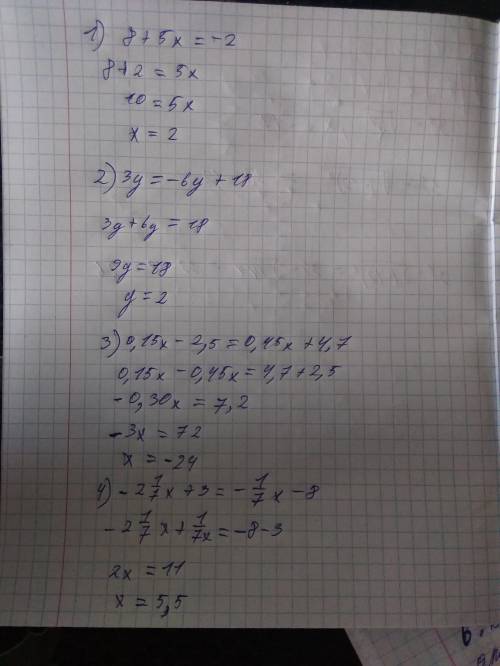 1) 8+5x=-2
8+2=5x
10=5x
x=2
2) 3y=-6y+18
3y+6y=18
9y=18
y=2
3) 0,15x-2,5=0,45x+4,7
0,15x-0,45x=4,7+2,5
-0,30x=7,2
-3x=72
x=-24
4) -2 1/7 x+3=-1/7 x-8
-2 1/7 x+1/7x=-8-3
2x=11
x=5,5